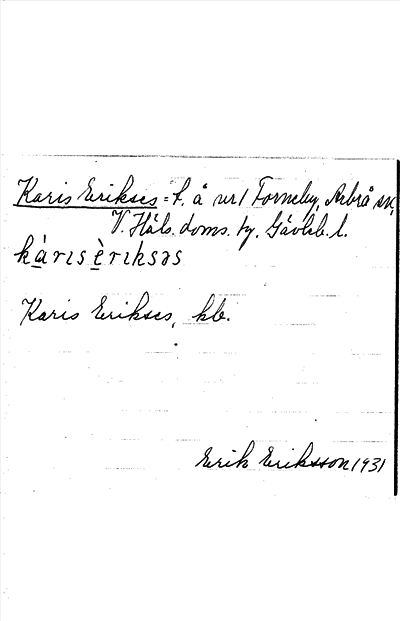 Karis Erikses = f. å nr 1 Forneby, Arbrå sn,
V. Häls. doms. tg. Gävleb. l.
kàrɩsèrɩksəs
Karis Erikses, hle.
Erik Eriksson 1931